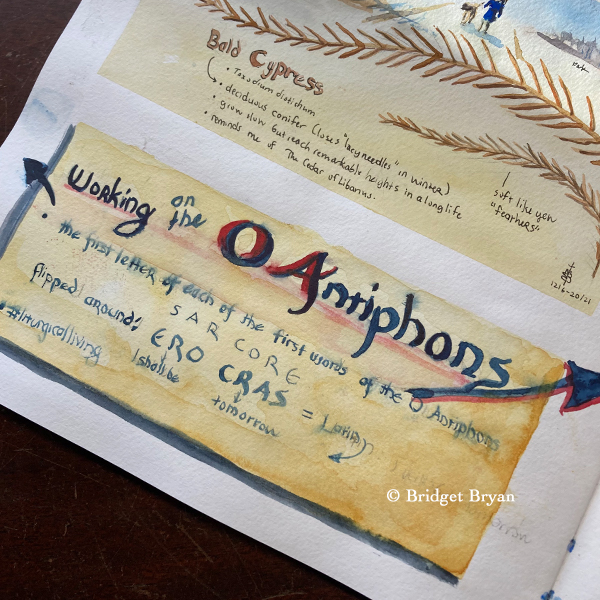 Bald Cypress
• Taxodium distichum
• deciduous conifer (loses "lacy needles" in winter)
• grow slow but reach remarkable heights in a long life
• reminds me of The Cedar of Libanus.
soft like yew
"feathers"
12/6-20/21
Working on the O Antiphons
• the first letter of each of the first words of the O Antiphons
S A R C O R E
flipped around: ERO CRAS = Latin
I shall be
tomorrow
#liturgicalliving
© Bridget Bryan